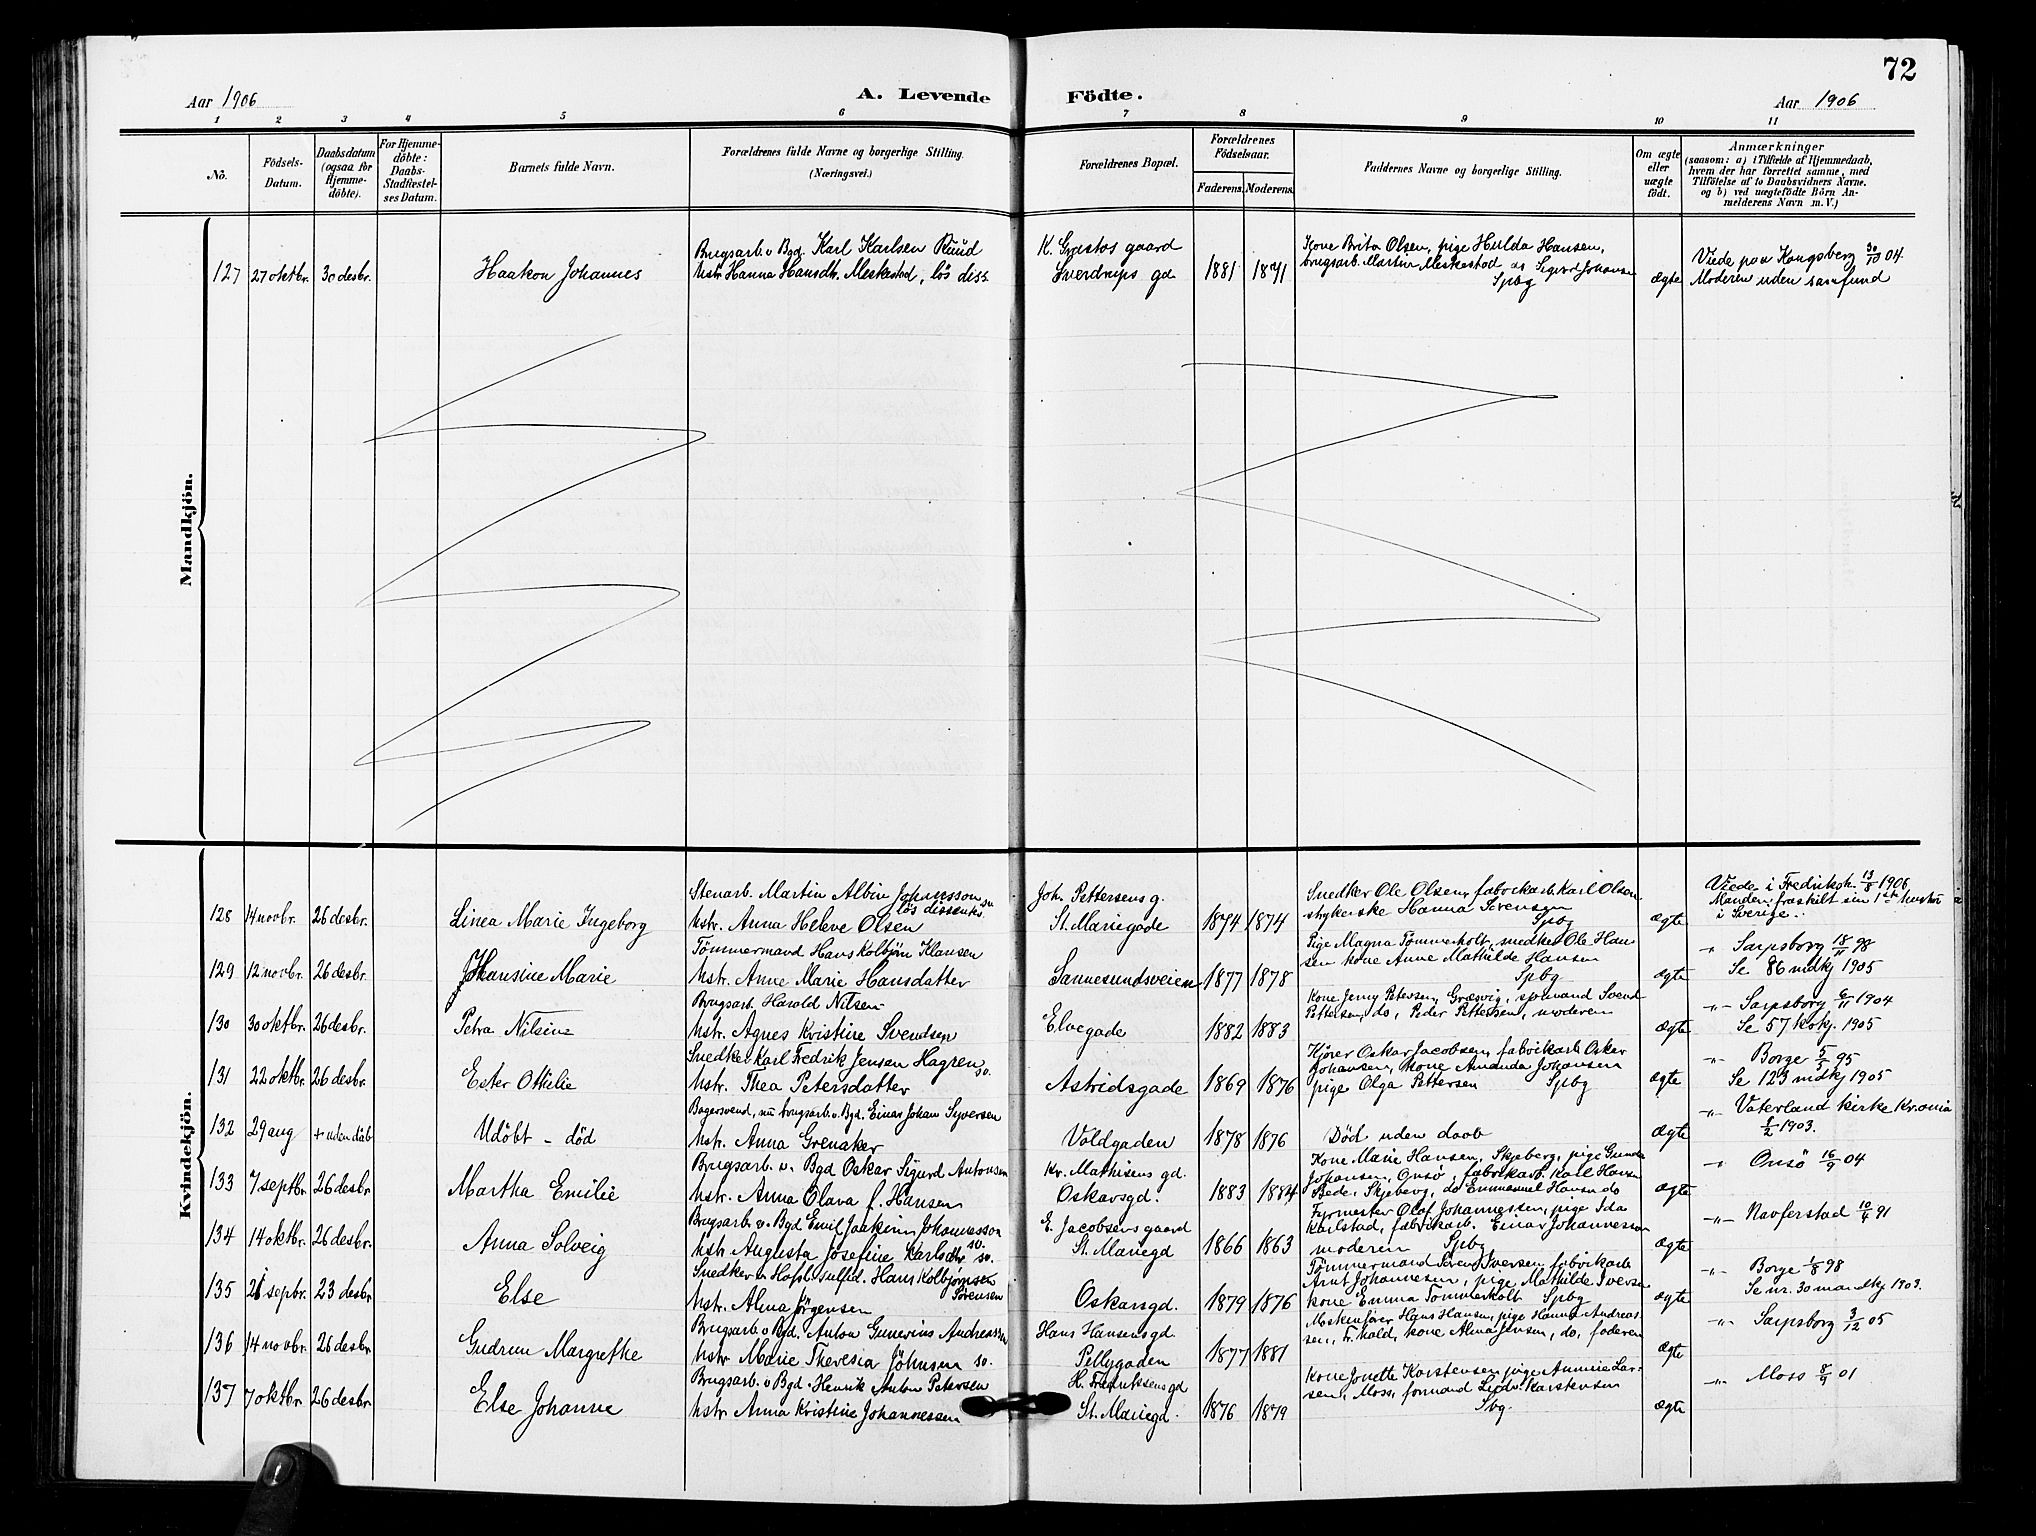 72
Aar 1906
A. Levende Födte.
Aar 1906
1 2 3 4 5 6 7 8 9 10 11
No. Födsels-Datum. Daabsdatum (ogsaa for Hjemme-döbte). For Hjemme-döbte: Daabs-Stadfæstelses Datum. Barnets fulde Navn. Forældrenes fulde Navne og borgerlige Stilling. (Næringsvei.) Forældrenes Bopæl. Forældrenes Födselsaar. Faderens. Moderens. Faddernes Navne og borgerlige Stilling. Om ægte eller uægte födt. Anmærkninger
(saasom: a) i Tilfælde af Hjemmedaab, hvem der har forrettet samme, med Tilföielse af to Daabsvidners Navne. og b) ved uegtefödte Börn Anmelderens Navn m. V.)
Mandkjön.
127 27 oktbr. 30 desbr. Haakon Johannes
Brugsarb. v. Bgd. Karl Karlsen Ruud
Hstr. Hanna Hansdtr. Meskestad, lös diss.
Sverdrups gd 1881 1871
Kone Brita Olsen, pige Hulda Hansen,
brugsarb. Martin Meskestad og Sigurd Johansen
Spbg
ægte
Viede paa Kongsberg 30/10 04
Moderen uden samfund
Kvindekjön.
128 14 novbr. 26 desbr. Linea Marie Ingeborg
Stenarb. Martin Albin Johansson sv.
lös dissents.
Hstr. Anna Helene Olsen
Joh. Pettersens g.
St. Mariegade 1874 1874
Snedker Ole Olsen, fabrikarb. Karl Olsen
strykerske Hanna Sörensen
Spbg
ægte
Viede i Fredriksh. 13/8 1906
Manden fraskilt sin 1ste hustru
i Sverige.
129 12 novbr. 26 desbr. Johansine Marie
Tömmermand Hans Kolbjörn Klausen
Hstr. Anne Marie Hansdatter
Sannesundsveien 1877 1878
Pige Magna Tömmerholt, snedker Ole Hansen
kone Anne Mathilde Hansen
Spbg
ægte
-"- Sarpsborg 18/11 98
Se 86 mdkj 1905
130 30 oktbr. 26 desbr. Petra Nilsine
Brugsarb. Harald Nilsen
Hstr. Agnes Kristine Svendsen
Elvegade 1882 1883
Kone Jenny Petersen, Græsvig, sjömand Svend
Pettersen, do, Peder Pettersen, moderen
ægte
-"- Sarpsborg 6/11 1904
Se 57 kvkj. 1905
131 22 oktbr. 26 desbr. Ester Ottilie
Snedker Karl Fredrik Jensen Hagren
so.
Hstr. Thea Petersdatter
Astridsgade 1869 1876
Kjörer Oskar Jacobsen, fabrikarb. Oskar
Johansen, kone Amanda Johansen
pige Olga Pettersen Spbg
ægte
-"- Borge 5/5 95
Se 123 mdkj 1905
132 29 aug + uden daab Udöbt - död
Bagersvend, nu brugsarb. v. Bgd. Einar Johan Syversen
Hstr. Anna Grenaker
Voldgaden 1878 1876
Död uden daab
ægte
-"- Vaterland kirke Kr.ania
1/2 1903.
133 7 septbr. 26 desbr. Martha Emilie
Brugsarb. v. Bgd Oskar Sigurd Antonsen
Hstr. Anna Olava f. Hansen
Kr. Mathisens gd
Oskarsgd. 1883 1884
Kone Marie Hansen, Skjeberg, pige Gunda
Johansen, Onsö, fabrikarb. Karl Hansen
Bede, Skjeberg, do Emmanuel Hansen do
ægte
" Onsö 16/9 04
134 14 oktbr. 26 desbr. Anna Solveig
Brugsarb. v. Bgd Emil Joakim Johannesson
so.
Hstr Augusta Josefine Karlsdtr so.
E. Jacobsens gaard
St. Mariegd 1866 1863
Fyrmester Olaf Johannessen, pige Ida
Karlstad, fabrikarb. Einar Johannesson
moderen Spbg
ægte
-"- Navferstad 10/4 91
135 21 sepbr. 23 desbr. Else
Snedker v. Hafsl. sulfid. Hans Kolbjörnsen
Sörensen
Hstr. Alma Jörgensen
Oskarsgd. 1879 1876
Tömmermand Sören Iversen, fabrikarb.
Arnt Johannesen, pige Mathilde Iversen
kone Emma Tömmerholt Spbg
ægte
-"- Borge 1/8 98
Se nr. 30 mandkj 1903.
136 14 novbr. 26 desbr. Gudrun Margrethe
Brugsarb. v Bgd. Anton Gunerius Andreassen
Hstr. Marie Theresia Johnsen so.
Hans Hansens gd.
Pellygaden 1877 1881
Maskinförer Hans Hansen, pige Hanna Andreassen,
Fr.hald, kone Alma Jensen, do, faderen
ægte
-"- Sarpsborg 3/12 05
137 7 oktbr. 26 desbr. Else Johanne
Brugsarb. v Bgd. Henrik Anton Petersen
Hstr. Anna Kristine Johannessen
H. Fredriksens gd
St. Mariegd. 1876 1879
Kone Jonette Karstensen, pige Ammie Larsen,
Moss, formand Ludv. Karstensen
Sbg.
ægte
-"- Moss 8/9 01